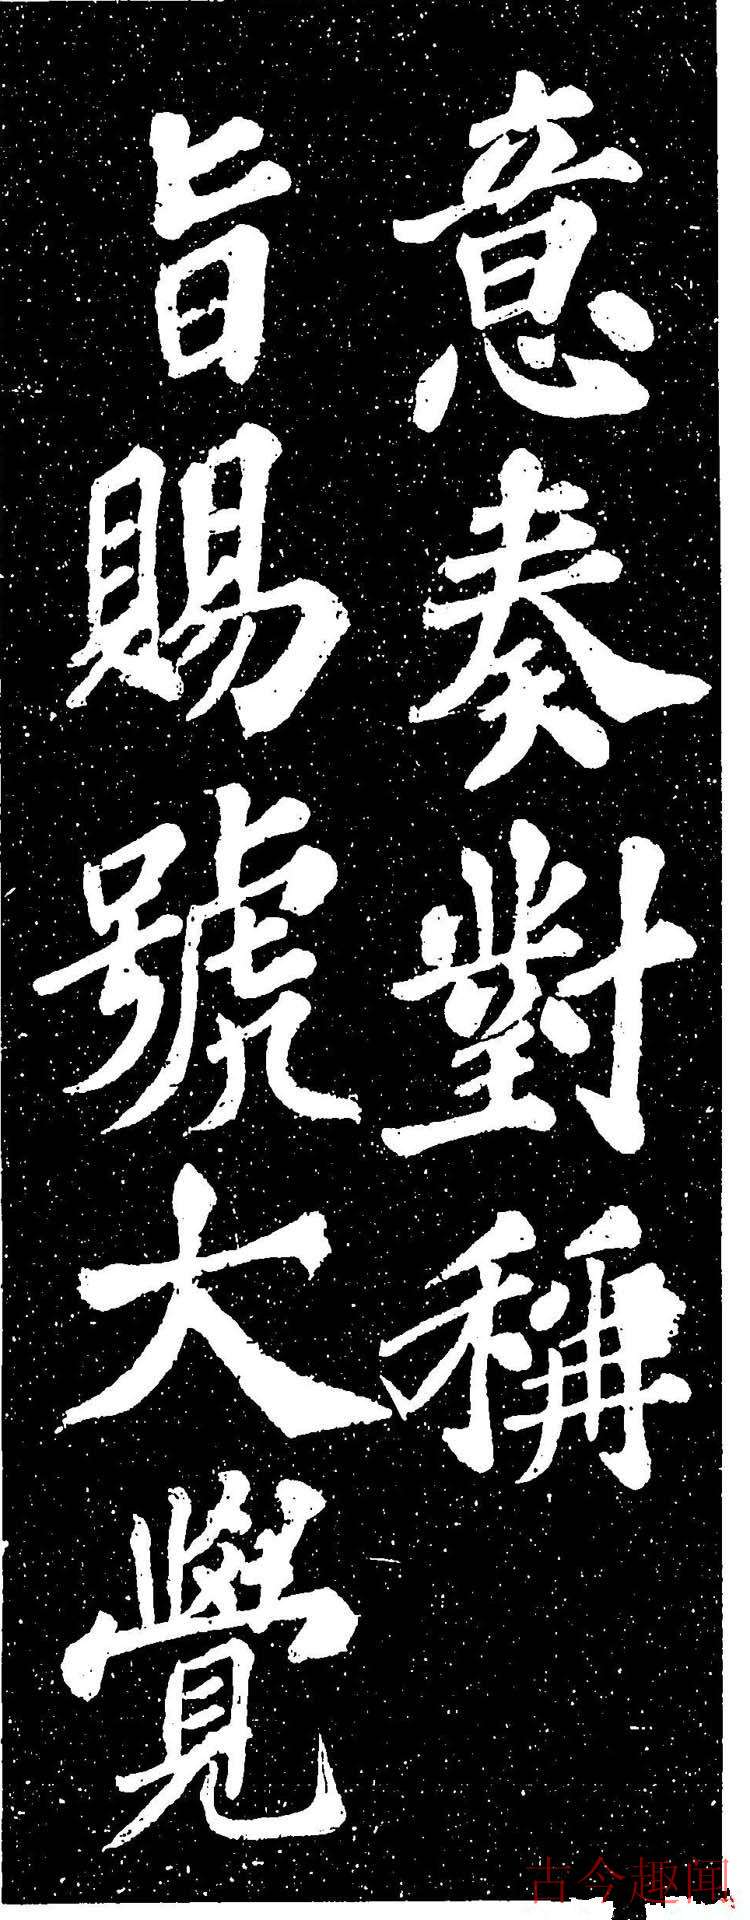 意奏對稱
旨賜號大覺
古今趣闻